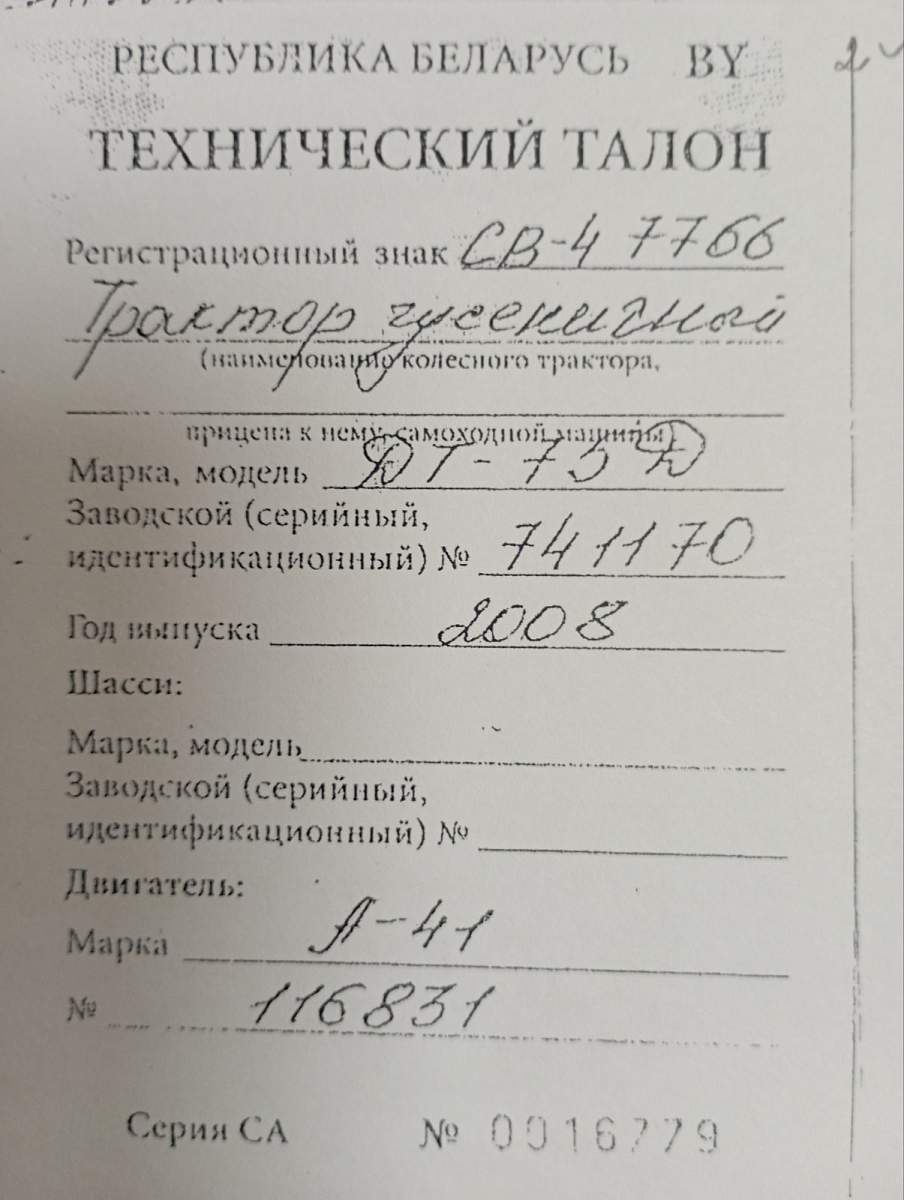 РЕСПУБЛИКА БЕЛАРУСЬ BY
ТЕХНИЧЕСКИЙ ТАЛОН
Регистрационный знак СВ-4 7766
Трактор гусеничный
(наименование колесного трактора,
прицепа к нему, самоходной машины)
Марка, модель ДТ-75Д
Заводской (серийный,
идентификационный) № 741170
Год выпуска 2008
Шасси:
Марка, модель
Заводской (серийный,
идентификационный) №
Двигатель:
Марка А-41
№ 116831
Серия СА № 0016779